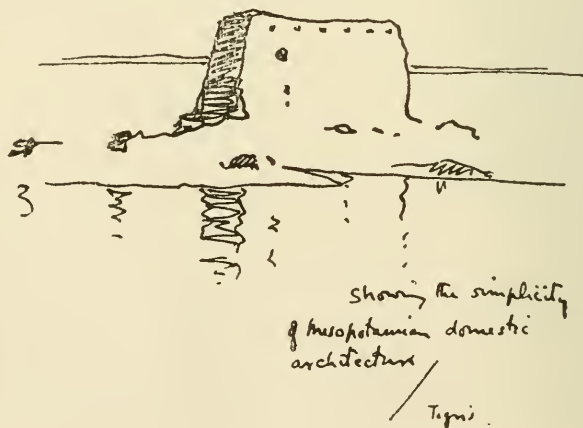 Showing the simplicity
of Mesopotamian domestic
architecture
Tigris.